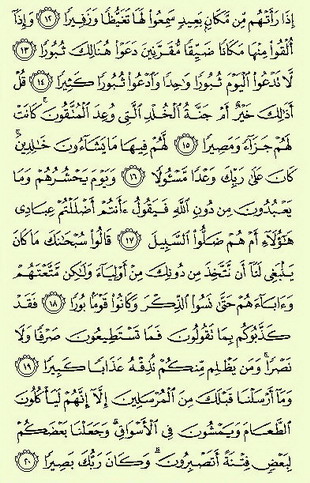 إِذَا رَأَتْهُم مِّن مَّكَانٍۭ بَعِيدٍ سَمِعُوا۟ لَهَا تَغَيُّظًا وَزَفِيرًا ﴿١٢﴾ وَإِذَآ
أُلْقُوا۟ مِنْهَا مَكَانًا ضَيِّقًا مُّقَرَّنِينَ دَعَوْا۟ هُنَالِكَ ثُبُورًا ﴿١٣﴾
لَّا تَدْعُوا۟ ٱلْيَوْمَ ثُبُورًا وَٰحِدًا وَٱدْعُوا۟ ثُبُورًا كَثِيرًا ﴿١٤﴾ قُلْ
أَذَٰلِكَ خَيْرٌ أَمْ جَنَّةُ ٱلْخُلْدِ ٱلَّتِى وُعِدَ ٱلْمُتَّقُونَ ۚ كَانَتْ
لَهُمْ جَزَآءً وَمَصِيرًا ﴿١٥﴾ لَّهُمْ فِيهَا مَا يَشَآءُونَ خَٰلِدِينَ ۚ
كَانَ عَلَىٰ رَبِّكَ وَعْدًا مَّسْـُٔولًا ﴿١٦﴾ وَيَوْمَ يَحْشُرُهُمْ وَمَا
يَعْبُدُونَ مِن دُونِ ٱللَّهِ فَيَقُولُ ءَأَنتُمْ أَضْلَلْتُمْ عِبَادِى
هَٰٓؤُلَآءِ أَمْ هُمْ ضَلُّوا۟ ٱلسَّبِيلَ ﴿١٧﴾ قَالُوا۟ سُبْحَٰنَكَ مَا كَانَ
يَنۢبَغِى لَنَآ أَن نَّتَّخِذَ مِن دُونِكَ مِنْ أَوْلِيَآءَ وَلَٰكِن مَّتَّعْتَهُمْ
وَءَابَآءَهُمْ حَتَّىٰ نَسُوا۟ ٱلذِّكْرَ وَكَانُوا۟ قَوْمًۢا بُورًا ﴿١٨﴾ فَقَدْ
كَذَّبُوكُم بِمَا تَقُولُونَ فَمَا تَسْتَطِيعُونَ صَرْفًا وَلَا
نَصْرًا ۚ وَمَن يَظْلِم مِّنكُمْ نُذِقْهُ عَذَابًا كَبِيرًا ﴿١٩﴾
وَمَآ أَرْسَلْنَا قَبْلَكَ مِنَ ٱلْمُرْسَلِينَ إِلَّآ إِنَّهُمْ لَيَأْكُلُونَ
ٱلطَّعَامَ وَيَمْشُونَ فِى ٱلْأَسْوَاقِ ۗ وَجَعَلْنَا بَعْضَكُمْ
لِبَعْضٍ فِتْنَةً أَتَصْبِرُونَ ۗ وَكَانَ رَبُّكَ بَصِيرًا ﴿٢٠﴾